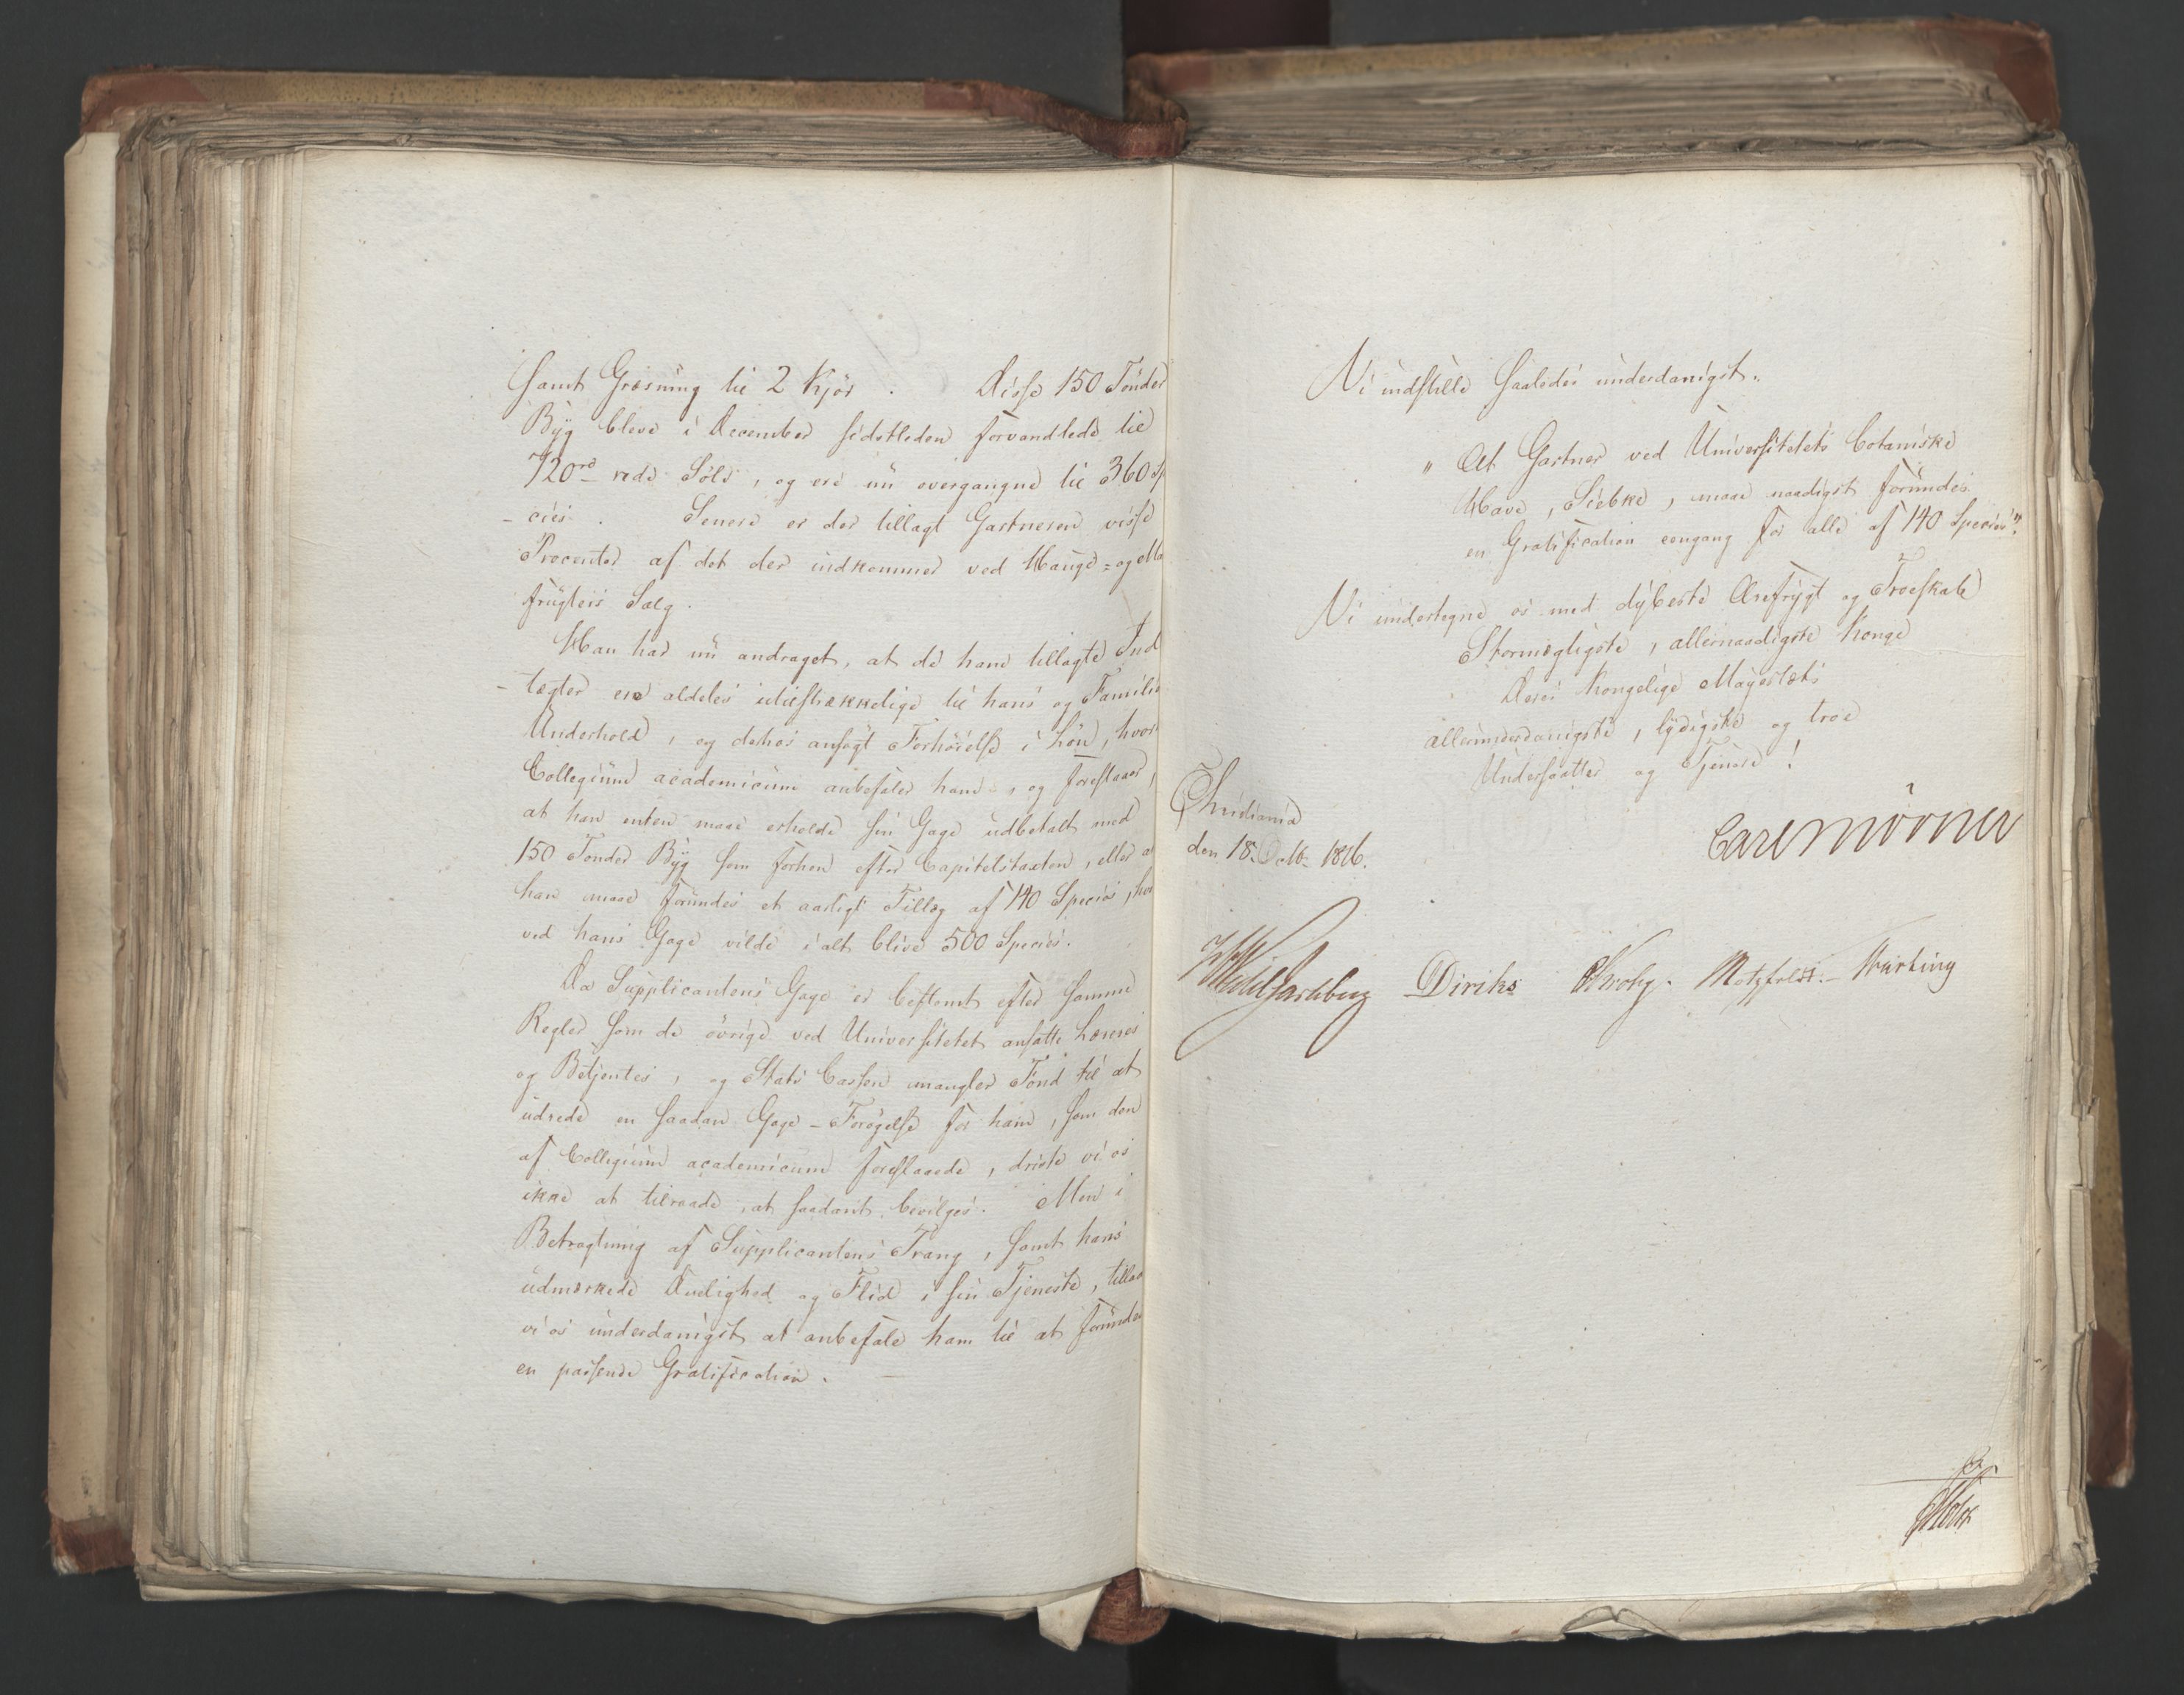 samt Græsning til 2 Kjör. Disse 150 Tönder
Byg bleve i December sidstleden forvandlede til
720rd rede Sölv, og ere nu overgangne til 360 Sp
-cies. Senere er der tillagt Gartneren visse
Procenter af det der indkommer ved Hauge= og Ma
frugters Salg.
Han har nu andraget, at de ham tillagte Ind
-tægter ere aldeles utilstrækkelige til hans og Familie
Underhold, og derhos ansögt Forhöielse i Lön, hvor
Collegium academicum anbefaler ham, og foreslaaer,
at han enten maae erholde sin Gage udbetalt med
150 Tönder Byg som forhen efter Capitelstaxten, eller at
han maae forundes et aarligt Tillæg af 140 Species, hvor
ved hans Gage vilde i alt blive 500 Species.
Da Supplicantens Gage er bestemt efter samme
Regler som de övrige ved Universitetet ansatte Læreres
og Betjentes, og Stats Cassen mangler Fond til at
udrede en saadan Gage-Forögelse for ham, som den
af Collegium academicum foreslaaede, driste vi os
ikke at tilraade, at saadant bevilges. Men i
Betragtning af Supplicantens Trang, samt hans
udmærkede Duelighed og Flid i sin Tjeneste, tillad
vi os underdanigst at anbefale ham til at forundes
en passende Gratification. —
Vi indstille saaledes underdanigst:
" At Gartner ved Universitetets botaniske
Have, Siebke, maae naadigst forundes
en Gratification eengang for alle af 140 Species".
Vi undertegne os med dybeste Ærefrygt og Troeskab
Stormægtigste, allernaadigste Konge
Deres Kongelige Mayestæts
allerunderdanigste, lydigste og troe
Undersaatter og Tjenere!
Christiania
den 18. Octbr 1816.
Carl Mörner
Wedel Jarlsberg Diriks Krohg. Motzfeldt. — Hærting